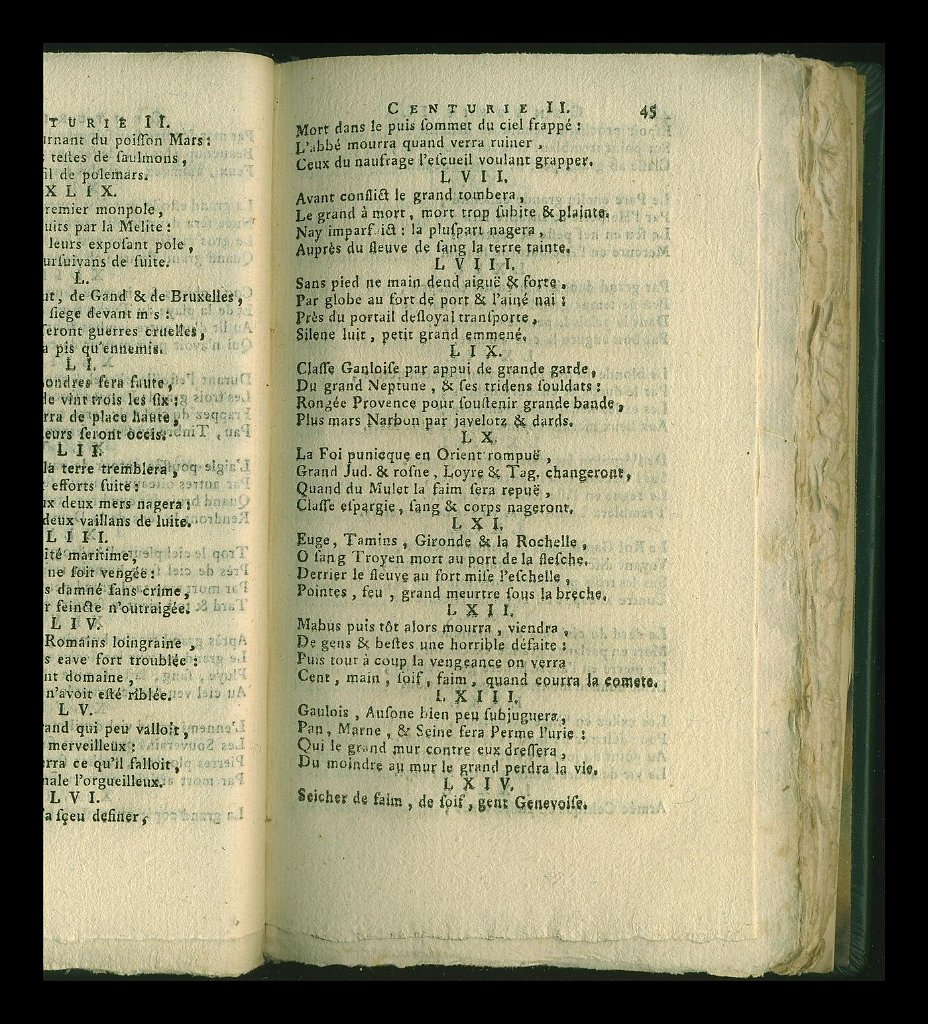 TURIE II.
rnant du poiſſon Mars:
teſtes de ſaulmons,
il de polemars.
XLIX.
remier monpole,
uits par la Melite:
leurs expoſant pole,
urſuivans de ſuite.
L.
nt, de Gand & de Bruxelles,
ſiege devant
ſeront guerres cruelles,
a pis qu'ennemis.
LI.
ondres fera faute,
de vint trois les ſix:
rra de place haute,
eurs ſeront occis.
LII.
la terre tremblera,
efforts ſuite:
ux deux mers nagera;
deux vaillans de luite.
LIII.
ité maritime,
ne ſoit vengée:
s damné ſans crime,
r feincte n'outraigée.
LIV.
Romains loingraine,
s eave fort troublée:
nt domaine,
n'avoit eſté riblée.
LV.
and qui peu valloit,
merveilleux:
rra ce qu'il falloit,
nale l'orgueilleux.
LVI.
a ſçeu definer,
CENTURIE II. 45
Mort dans le puis ſommet du ciel frappé:
L'abbé mourra quand verra ruiner,
Ceux du naufrage l'eſçueil voulant grapper.
LVII.
Avant conflict le grand tombera,
Le grand à mort, mort trop ſubite & plainte.
Nay imparf ict: la pluſpart nagera,
Auprès du fleuve de ſang la terre tainte.
LVIII.
Sans pied ne main dend aiguë & forte,
Par globe au fort de port & l'ainé nai:
Près du portail deſloyal tranſporte,
Silene luit, petit grand emmené.
LIX.
Claſſe Gauloiſe par appui de grande garde,
Du grand Neptune, & ſes tridens ſouldats:
Rongée Provence pour ſouſtenir grande bande,
Plus mars Narbon par javelotz & dards.
LX.
La Foi punicque en Orient rompuë,
Grand Jud. & roſne, Loyre & Tag. changeront,
Quand du Mulet la faim ſera repuë,
Claſſe eſpargie, ſang & corps nageront.
LXI.
Euge, Tamins, Gironde & la Rochelle,
O ſang Troyen mort au port de la fleſche.
Derrier le fleuve au fort miſe l'eſchelle,
Pointes, feu, grand meurtre ſous la brèche.
LXII.
Mabus puis tôt alors mourra, viendra,
De gens & beſtes une horrible défaite:
Puis tout à coup la vengeance on verra
Cent, main, ſoif, faim, quand courra la comete.
LXIII.
Gaulois, Auſone bien peu ſubjuguera,
Pan, Marne, & Seine fera Perme l'urie:
Qui le grand mur contre eux dreſſera,
Du moindre au mur le grand perdra la vie.
LXIV.
Seicher de faim, de ſoif, gent Genevoiſe.